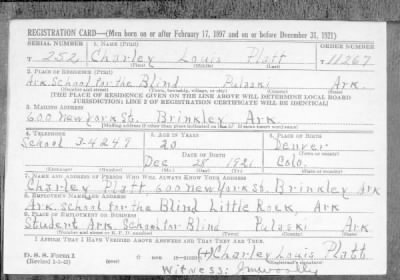 REGISTRATION CARD—(Men born on or after February 17, 1897 and on or before December 31, 1921)
SERIAL NUMBER 1. NAME (Print) ORDER NUMBER
T 252 Charley Louis Platt T 11267
(First) (Middle) (Last)
2. PLACE OF RESIDENCE (Print)
Ark. School for the Blind Pulaski Ark.
(Number and street) (Town, township, village, or city) (County) (State)
[THE PLACE OF RESIDENCE GIVEN ON THE LINE ABOVE WILL DETERMINE LOCAL BOARD
JURISDICTION; LINE 2 OF REGISTRATION CERTIFICATE WILL BE IDENTICAL]
3. MAILING ADDRESS
600 New York St. Brinkley Ark
[Mailing address if other than place indicated on line 2. If same insert word same]
4. TELEPHONE 5. AGE IN YEARS 6. PLACE OF BIRTH
School 3-4249 20 Denver
DATE OF BIRTH (Town or county)
Dec 28 1921 Colo.
(Mo.) (Day) (Yr.) (State or country)
7. NAME AND ADDRESS OF PERSON WHO WILL ALWAYS KNOW YOUR ADDRESS
Charley Platt 600 New York St. Brinkley Ark
8. EMPLOYER'S NAME AND ADDRESS
Ark. School for the Blind Little Rock, Ark
9. PLACE OF EMPLOYMENT OR BUSINESS
Student Ark School for Blind Pulaski Ark
(Number and street or R. F. D. number) (Town) (County) (State)
I AFFIRM THAT I HAVE VERIFIED ABOVE ANSWERS AND THAT THEY ARE TRUE.
D. S. S. Form 1
(Revised 1-1-42) (over) (+) Charley Louis Platt
Witness: